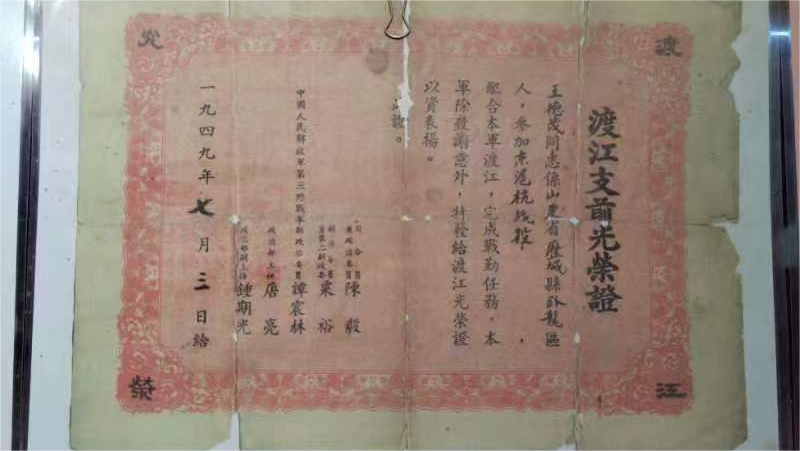 渡江支前光榮證
王抱茂同志係山東省歷城縣卧龍區
人，參加京滬杭战役，
配合本軍渡江，完成戰勤任務，本
軍除致謝意外，特發給渡江光榮證
以資表揚。
證。
中國人民解放軍第三野戰軍
司令員兼政治委員 陳毅
副司令員 粟裕
譚震林
政治部主任 唐亮
政治部副主任 鍾期光
一九四九年七月三日給
渡
江
光
榮